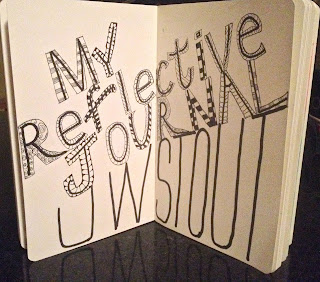 MY
Reflective
JOURNAL
UW STOUT